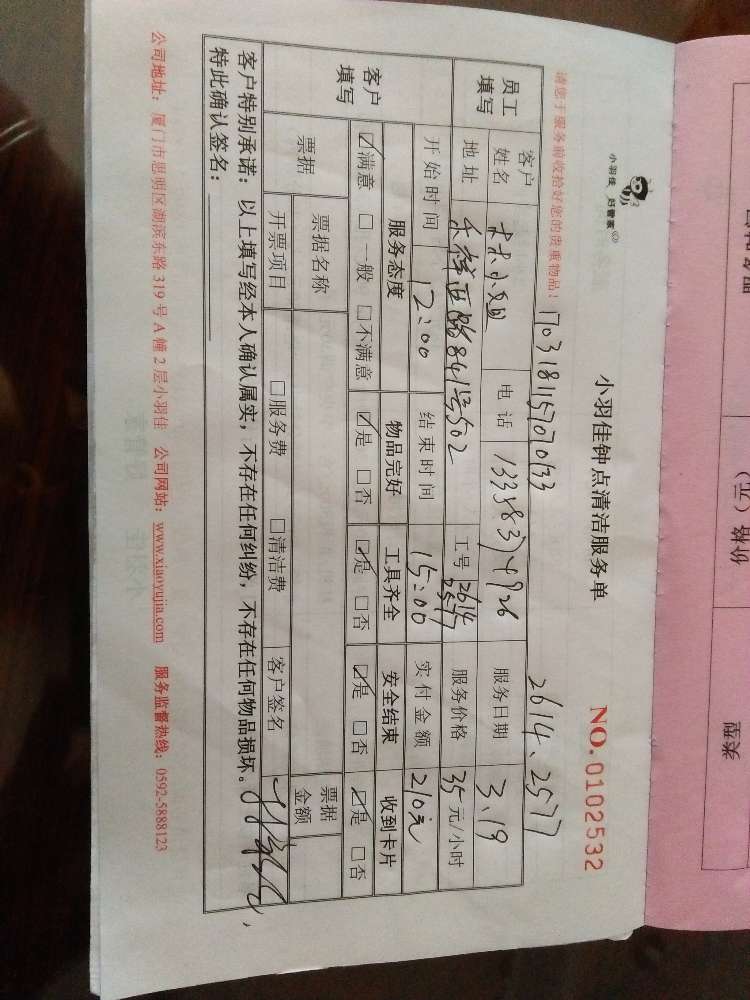 小羽佳 好管家
小羽佳钟点清洁服务单
NO.0102532
请您于服务前收拾好您的贵重物品！ 1703181157070133 2614、2577
员工填写 客户姓名 林小姐 电话 13358374926 服务日期 3、19
地址 路841号502 工号 2614 2577 服务价格 35元/小时
开始时间 12:00 结束时间 15:00 实付金额 210元
客户填写 服务态度 物品完好 工具齐全 安全结束 收到卡片
☑满意 □一般 □不满意 ☑是 □否 ☑是 □否 ☑是 □否 ☑是 □否
票据 票据名称 票据金额
开票项目 □服务费 □清洁费 客户签名
客户特别承诺：以上填写经本人确认属实，不存在任何纠纷，不存在任何物品损坏。
特此确认签名：
公司地址：厦门市思明区湖滨东路319号A幢2层小羽佳 公司网站：www.xiaoyujia.com 服务监督热线：0592-5888123
价格（元）
类型